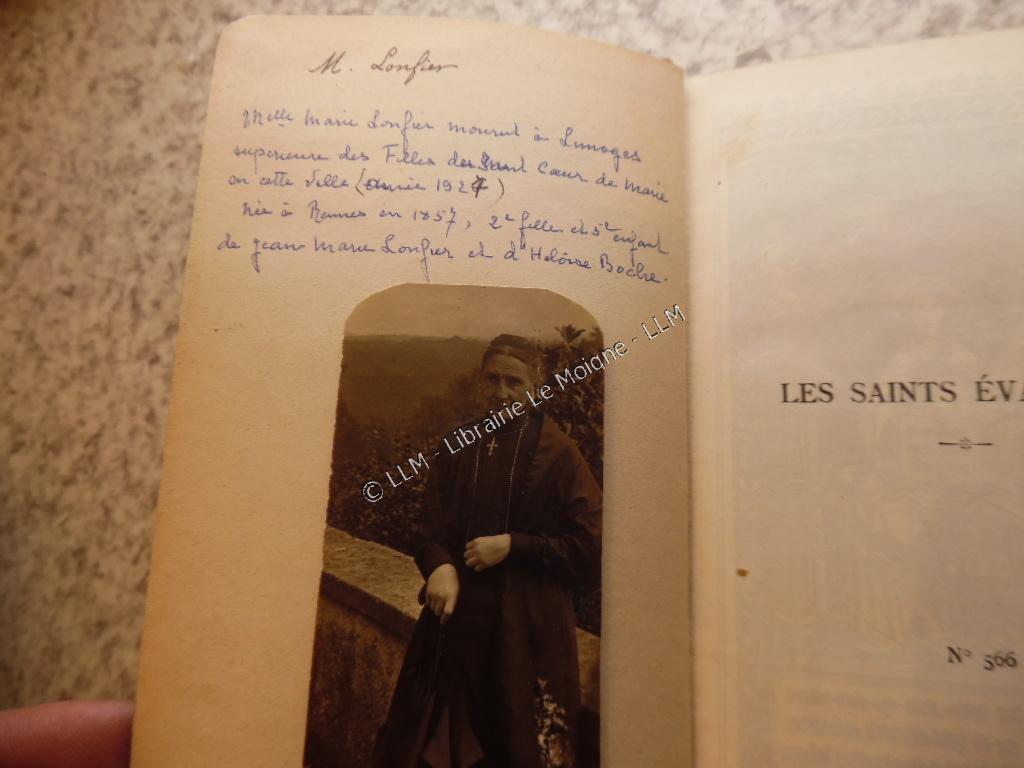 M. Lonfier
Melle Marie Lonfier mourut à Limoges
superieure des Filles du Saint Cœur de Marie
en cette ville (année 1927)
Née à Rennes en 1857, 2e fille et 5e enfant
de Jean-Marie Lonfier et d'Héloïse Boche.
© LLM - Librairie Le Moigne - LLM
LES SAINTS ÉVA
N° 566